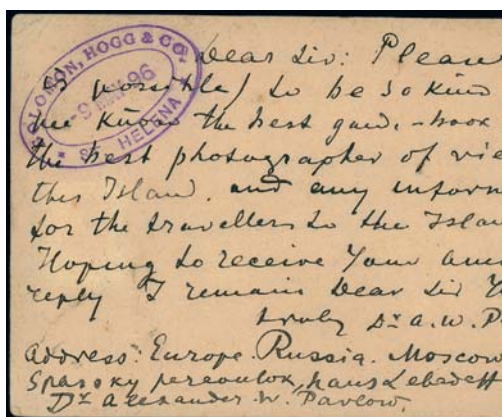 SOLOMON, HOGG & CO.
-9 MAY 96
ST. HELENA
Dear Sir: Please
is possible) to be so kind
me know the best guide-book
the best photographer of vie
this Island. and any inform
for the travellers to the Islan
Hoping to receive Your
reply I remain Dear Sir Y
truly Dr A. W. P
address: Europe. Russia. Moscow
Spasoky pereoulok, haus Lebedeff
Dr Alexander. W. Pavlow